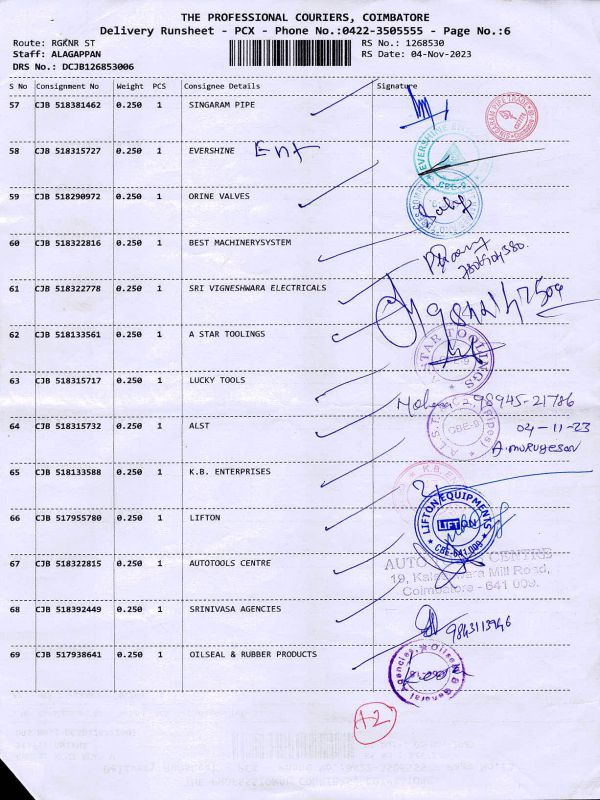 THE PROFESSIONAL COURIERS, COIMBATORE
Delivery Runsheet - PCX - Phone No.:0422-3505555 - Page No.:6
Route: RGKNR ST RS No.: 1268530
Staff: ALAGAPPAN RS Date: 04-Nov-2023
DRS No.: DCJB126853006
S No Consignment No Weight PCS Consignee Details Signature
57 CJB 518381462 0.250 1 SINGARAM PIPE
58 CJB 518315727 0.250 1 EVERSHINE Ent
EVERSHINE
CBE-9
59 CJB 518290972 0.250 1 ORINE VALVES
60 CJB 518322816 0.250 1 BEST MACHINERYSYSTEM
61 CJB 518322778 0.250 1 SRI VIGNESHWARA ELECTRICALS
62 CJB 518133561 0.250 1 A STAR TOOLINGS
STAR TOOLINGS
63 CJB 518315717 0.250 1 LUCKY TOOLS
98945-21786
64 CJB 518315732 0.250 1 ALST
CBE-9
04-11-23
A.murugesan
65 CJB 518133588 0.250 1 K.B. ENTERPRISES
K.B.
66 CJB 517955780 0.250 1 LIFTON
LIFTON EQUIPMENTS
CBE-641 009
67 CJB 518322815 0.250 1 AUTOTOOLS CENTRE
CENTRE
Mill Road,
Coimbatore - 641 009.
68 CJB 518392449 0.250 1 SRINIVASA AGENCIES
9843113946
69 CJB 517938641 0.250 1 OILSEAL & RUBBER PRODUCTS
General Agencies
A2